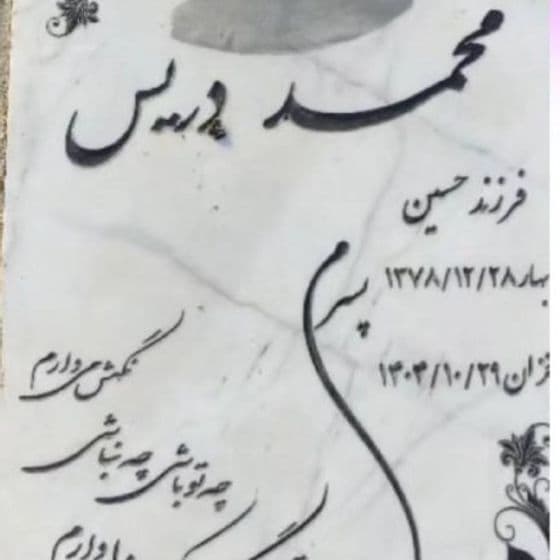 محمد دریس
فرزند حسین
بهار ۱۳۷۸/۱۲/۲۸
پسرم
خزان ۱۴۰۴/۱۰/۲۹
نگهش می دارم
چه تو باشی چه نباشی